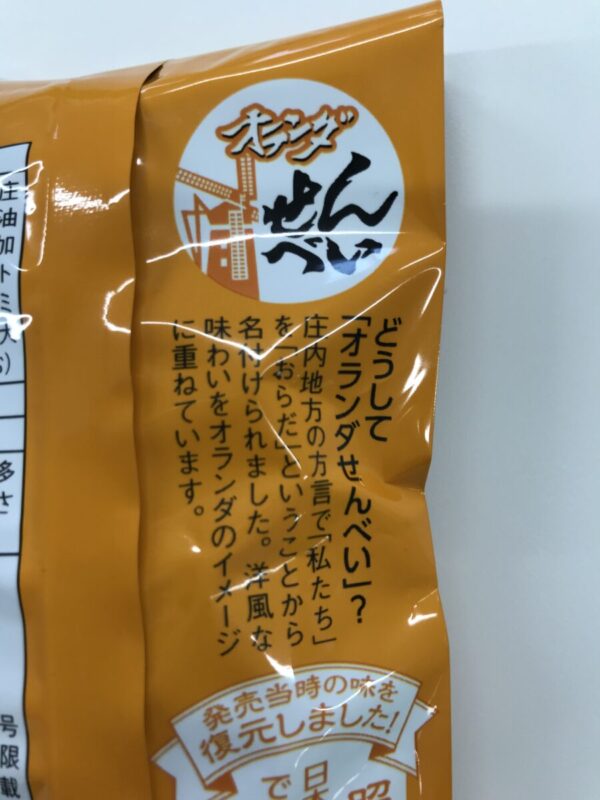 オランダ
せんべい
どうして
「オランダせんべい」?
庄内地方の方言で「私たち」
を「おらだ」ということから
名付けられました。洋風な
味わいをオランダのイメージ
に重ねています。
発売当時の味を
復元しました!
庄
油
加
ト
ミ
大
多
さ
号
限
載
日
で